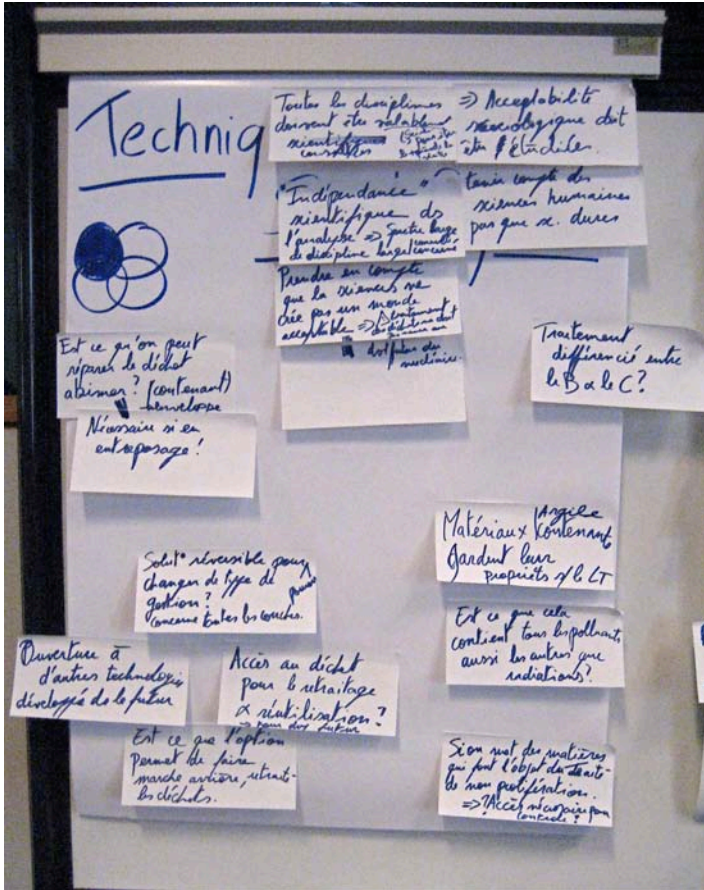 Techniq
Toutes les disciplines
doivent être valablement
scientifiques
consultées
=> Acceptabilité
sociologique doit
être étudiée.
"Indépendance"
scientifique ds
l'analyse => spectre large
de discipline large concerné
tenir compte des
sciences humaines
pas que sc. dures
Prendre en compte
que la sciences ne
crée pas un monde
acceptable =>
Est ce qu'on peut
réparer le déchet
abimer? (contenant)
enveloppe
Nécessaire si en
entreposage!
Traitement
différencié entre
le B & le C?
Argile
Matériaux Contenant
Gardent leur
propriétés s/ le LT
Solut° réversible pour
changer de type de
gestion?
concerne toutes les couches.
Est ce que cela
contient tous les polluants
aussi les autres que
radiations?
Ouverture à
d'autres technologies
développés ds le futur
Accès au déchet
pour le retraitage
& réutilisation?
Est ce que l'option
permet de faire
marche arrière, retraite
les déchets.
Si on met des matières
qui font l'objet du traité
de non prolifération.
=> ? Accès nécessaire pour
contrôle?